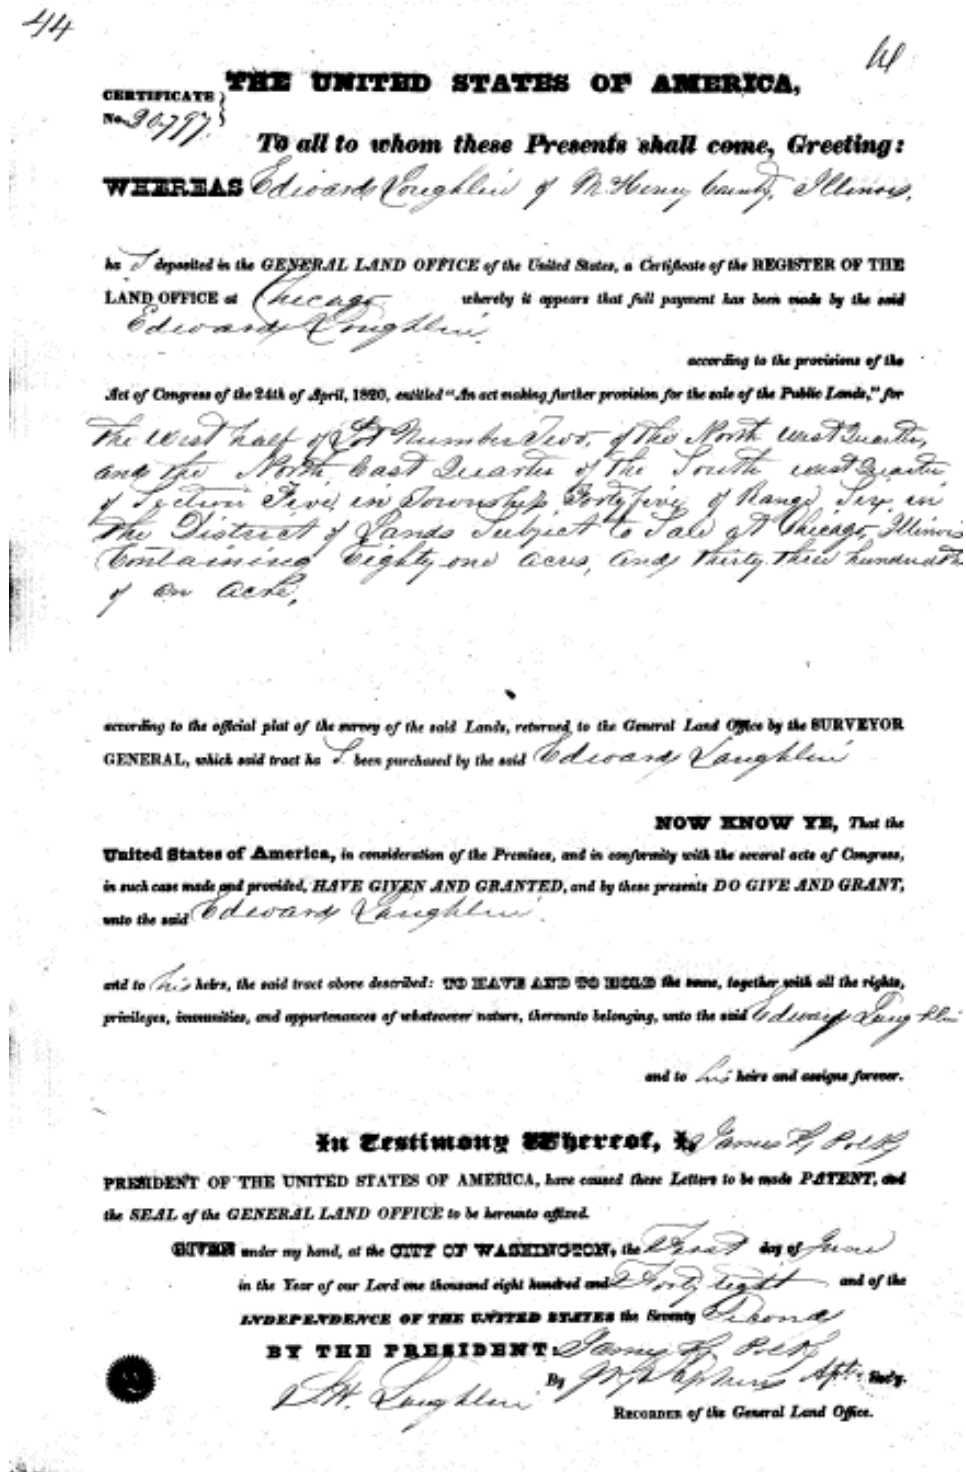 44
THE UNITED STATES OF AMERICA,
CERTIFICATE
No. 30,797.
To all to whom these Presents shall come, Greeting:
WHEREAS Edward Loughlin of McHenry County, Illinois,
ha s deposited in the GENERAL LAND OFFICE of the United States, a Certificate of the REGISTER OF THE
LAND OFFICE at Chicago whereby it appears that full payment has been made by the said
Edward Loughlin
according to the provisions of the
Act of Congress of the 24th of April, 1820, entitled "An act making further provision for the sale of the Public Lands," for
the West half of Lot Number Two, of the North West Quarter,
and the North East Quarter of the South West Quarter
of Section Five, in Township Forty five of Range Six, in
the District of Lands Subject to Sale at Chicago, Illinois
Containing Eighty one acres, and thirty three hundredths
of an acre,
according to the official plat of the survey of the said Lands, returned to the General Land Office by the SURVEYOR
GENERAL, which said tract ha s been purchased by the said Edward Laughlin
NOW KNOW YE, That the
United States of America, in consideration of the Premises, and in conformity with the several acts of Congress,
in such case made and provided, HAVE GIVEN AND GRANTED, and by these presents DO GIVE AND GRANT,
unto the said Edward Laughlin
and to his heirs, the said tract above described: TO HAVE AND TO HOLD the same, together with all the rights,
privileges, immunities, and appurtenances of whatsoever nature, thereunto belonging, unto the said Edward Laughlin
and to his heirs and assigns forever.
In Testimony Whereof, I, James K. Polk
PRESIDENT OF THE UNITED STATES OF AMERICA, have caused these Letters to be made PATENT, and
the SEAL of the GENERAL LAND OFFICE to be hereunto affixed.
GIVEN under my hand, at the CITY OF WASHINGTON, the First day of June
in the Year of our Lord one thousand eight hundred and Forty eight and of the
INDEPENDENCE OF THE UNITED STATES the Seventy Second
BY THE PRESIDENT: James K. Polk
By Asst. Sec'y.
S. H. Laughlin
RECORDER of the General Land Office.